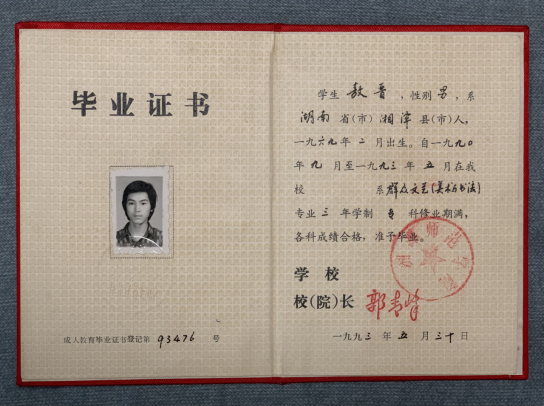 毕业证书
成人教育毕业证书登记第 93476 号
学生 敖普 ,性别 男 ,系
湖南 省(市) 湘潭 县(市)人,
一九六九 年 二 月出生。自一九九〇
年 九 月至一九九三 年 五 月在我
校 系 群众文艺(美术与书法)
专业 三 年学制 专 科修业期满,
各科成绩合格,准予毕业。
学校
校(院)长 郭
一九九三 年 五 月 三十 日